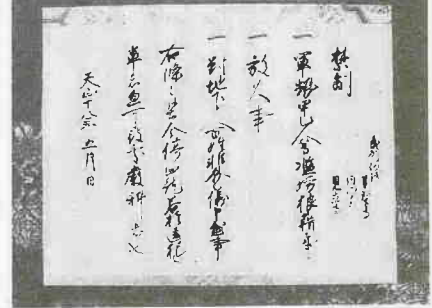 禁制
一 軍勢甲乙人等濫妨狼藉事
一 放火事
一 對地下人 非分之儀申懸事
右條々堅令停止訖若於違犯
輩者忽可被處嚴科者也
天正十八年 五月日